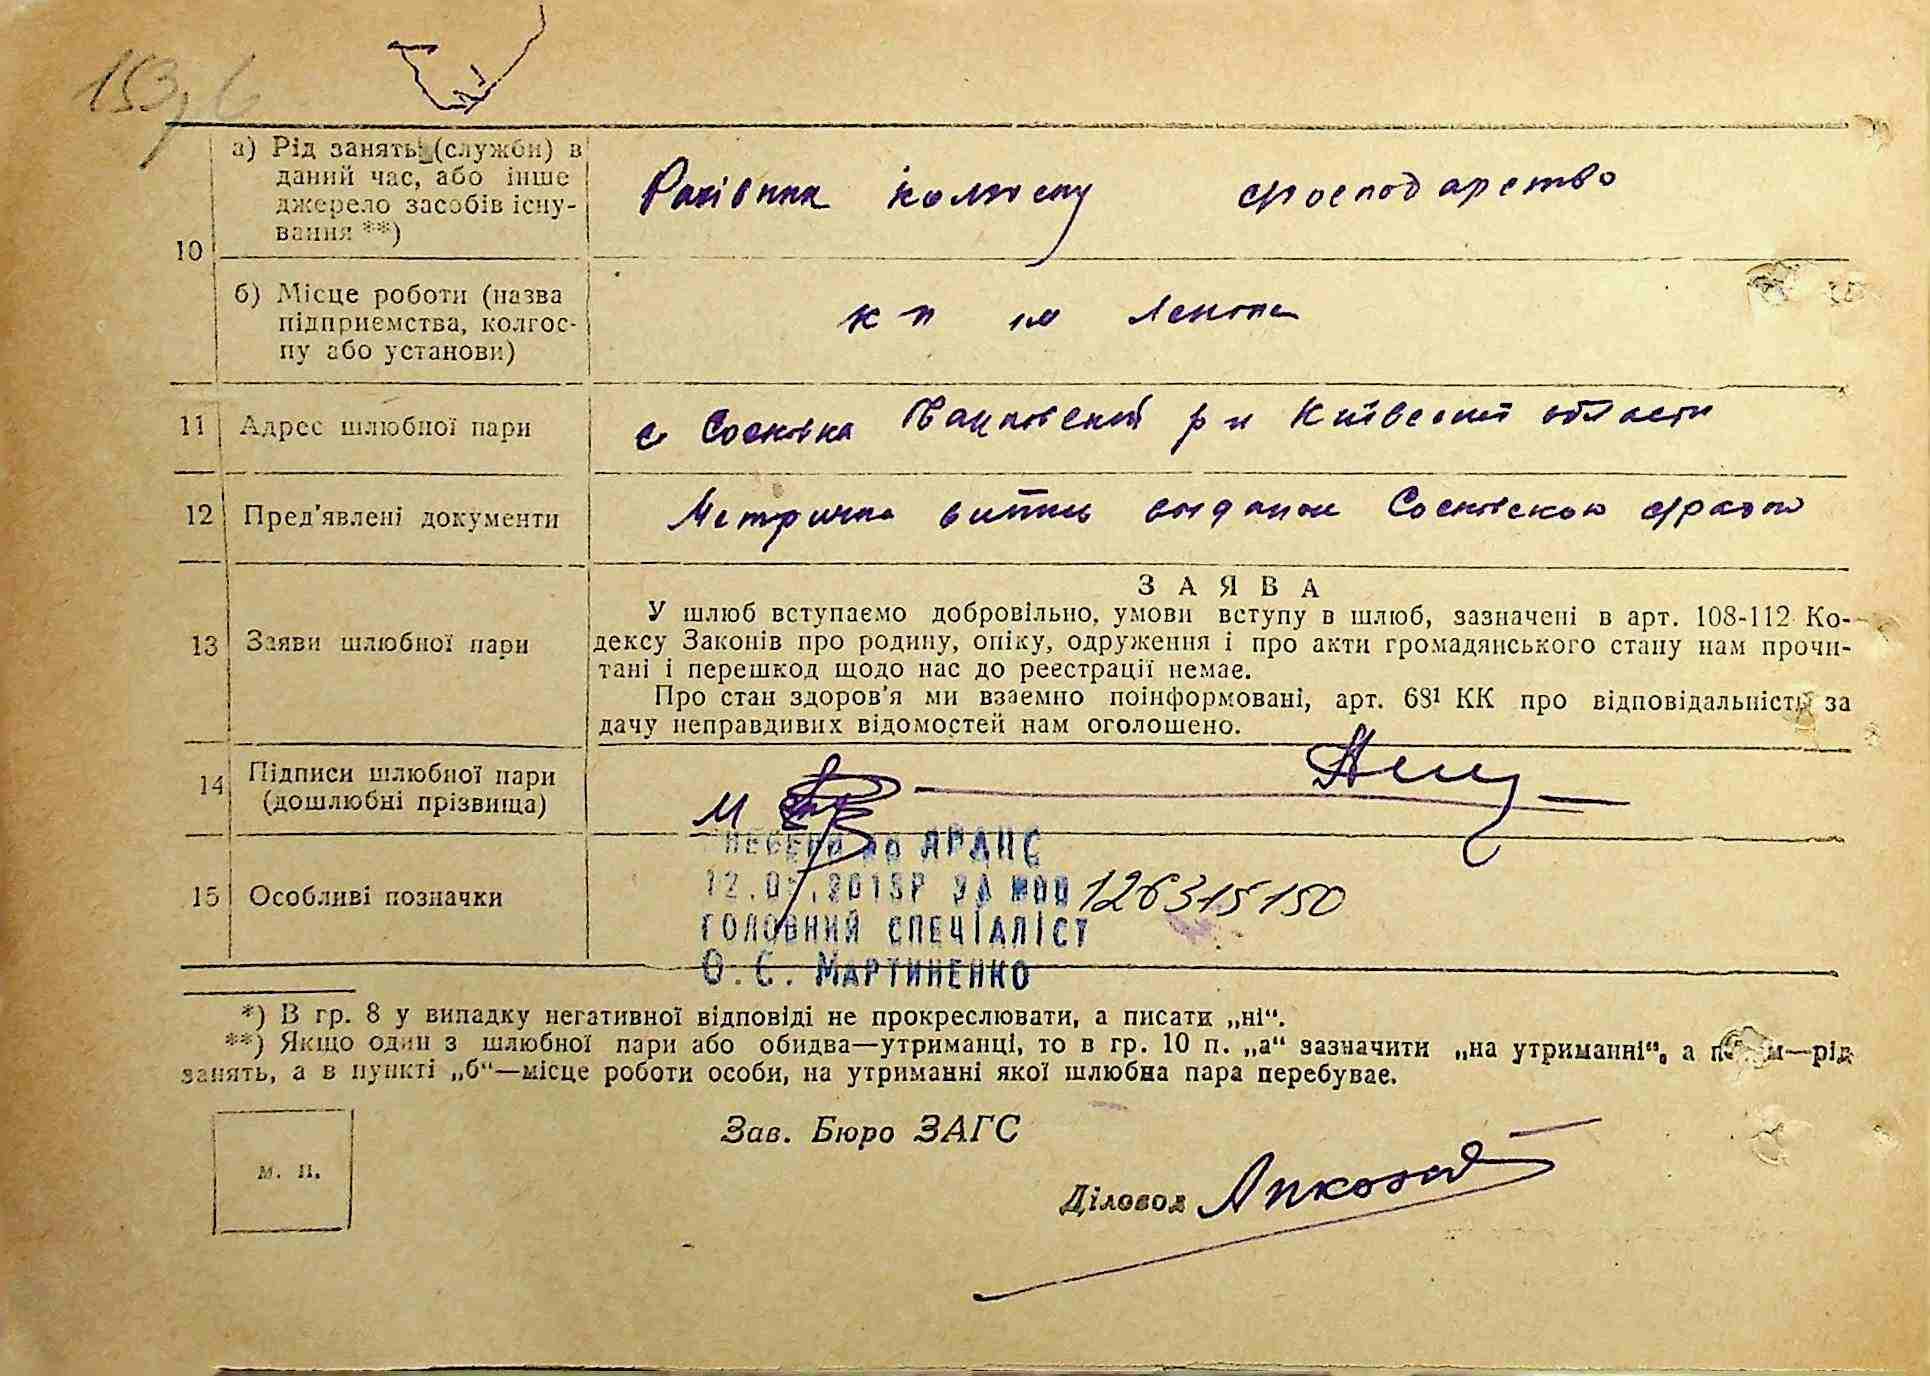 153
а) Рід занять (служби) в
даний час, або інше
джерело засобів існу-
вання **)
Рахівник колгоспу господарство
10
б) Місце роботи (назва
підприємства, колгос-
пу або установи)
к п ім Леніна
11 Адрес шлюбної пари
с Соснівка р н Київської області
12 Пред'явлені документи
Метрична випись видана Соснівскою с/радою
13 Заяви шлюбної пари
ЗАЯВА
У шлюб вступаємо добровільно, умови вступу в шлюб, зазначені в арт. 108-112 Ко-
дексу Законів про родину, опіку, одруження і про акти громадянського стану нам прочи-
тані і перешкод щодо нас до реєстрації немає.
Про стан здоров'я ми взаємно поінформовані, арт. 68¹ КК про відповідальність за
дачу неправдивих відомостей нам оголошено.
14 Підписи шлюбної пари
(дошлюбні прізвища)
15 Особливі позначки
до ДРАЦС
126315150
ГОЛОВНИЙ СПЕЦІАЛІСТ
О.С. МАРТИНЕНКО
*) В гр. 8 у випадку негативної відповіді не прокреслювати, а писати „ні“.
**) Якщо один з шлюбної пари або обидва—утриманці, то в гр. 10 п. „а“ зазначити „на утриманні“, а —рід
занять, а в пункті „б“—місце роботи особи, на утриманні якої шлюбна пара перебуває.
Зав. Бюро ЗАГС
м. п.
Діловод